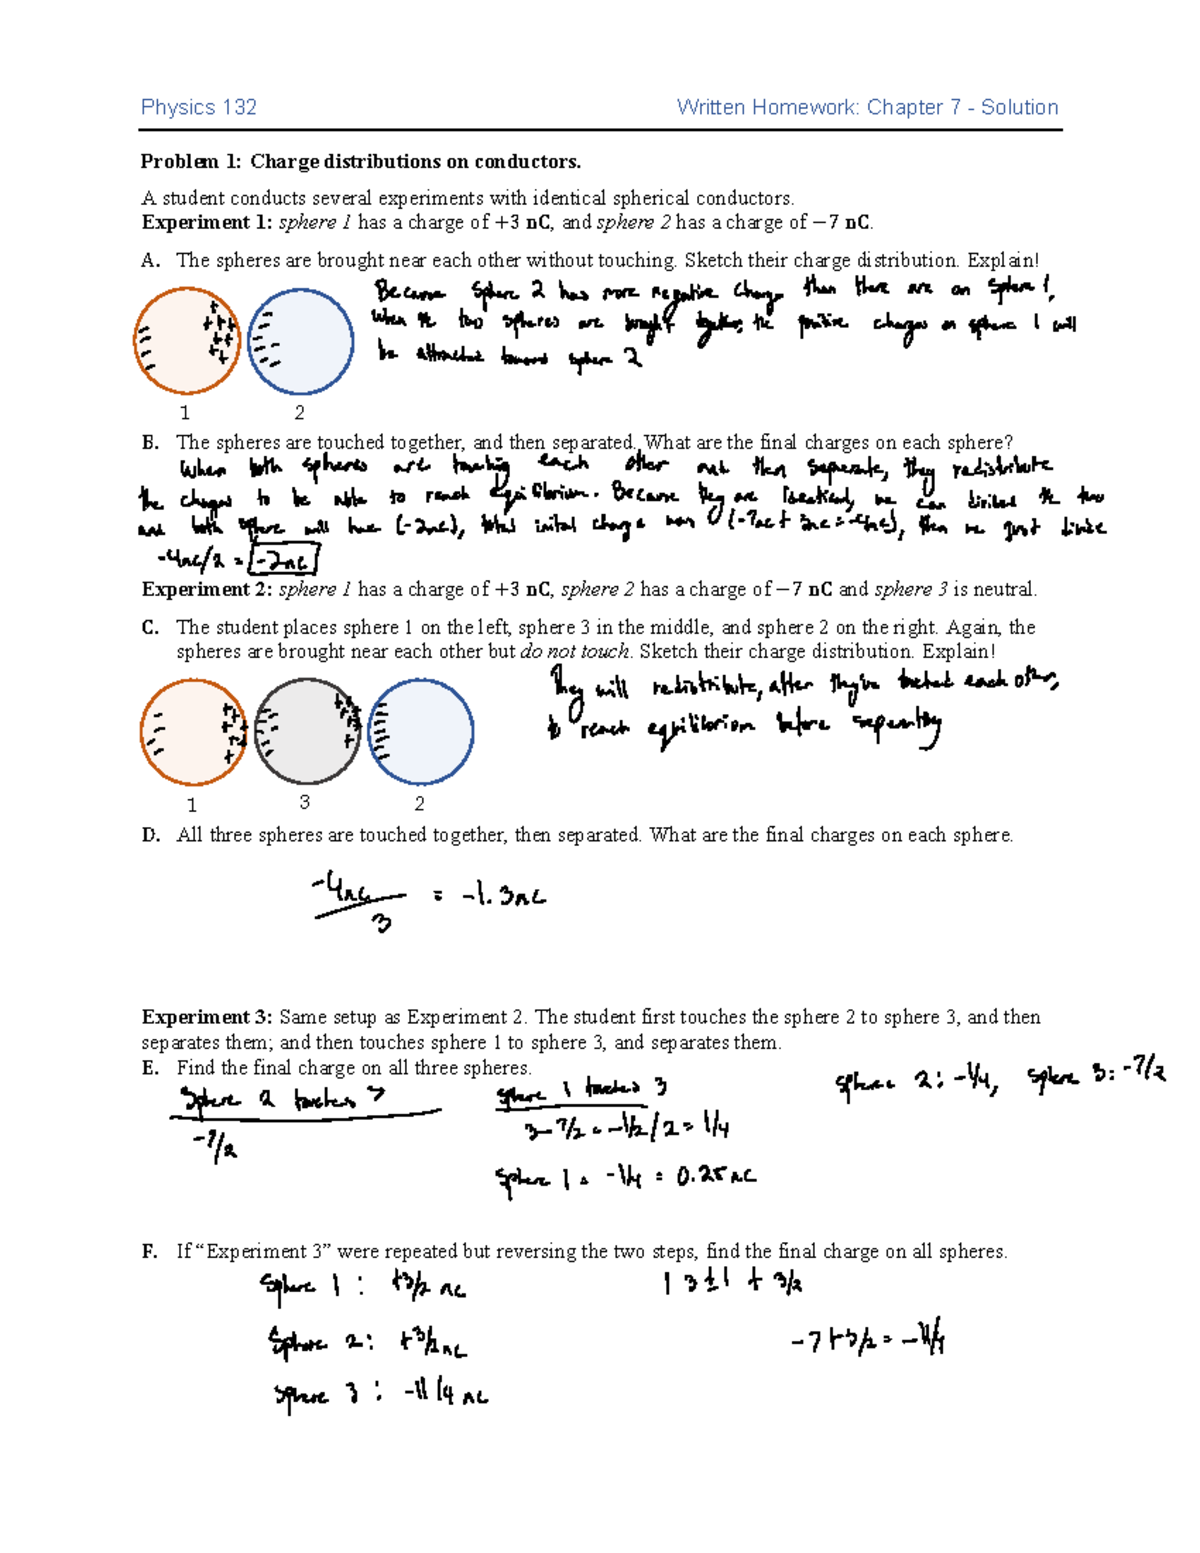 Physics 132 Written Homework: Chapter 7 - Solution
Problem 1: Charge distributions on conductors.
A student conducts several experiments with identical spherical conductors.
Experiment 1: sphere 1 has a charge of +3 nC, and sphere 2 has a charge of −7 nC.
A. The spheres are brought near each other without touching. Sketch their charge distribution. Explain!
Because sphere 2 has more negative charge than there are on sphere 1,
when the two spheres are brought together, the positive charges on sphere 1 will
be attracted toward sphere 2
1 2
B. The spheres are touched together, and then separated. What are the final charges on each sphere?
When both spheres are touching each other and then separate, they redistribute
the charges to be able to reach equilibrium. Because they are identical, we can divided the two
and both sphere will have (-2nC), total initial charge was (-7nC + 3nC = -4nC), then we just divide
-4nC/2 = -2nC
Experiment 2: sphere 1 has a charge of +3 nC, sphere 2 has a charge of −7 nC and sphere 3 is neutral.
C. The student places sphere 1 on the left, sphere 3 in the middle, and sphere 2 on the right. Again, the
spheres are brought near each other but do not touch. Sketch their charge distribution. Explain!
They will redistribute, after they've touched each other,
to reach equilibriom before seperating
1 3 2
D. All three spheres are touched together, then separated. What are the final charges on each sphere.
-4nC
/3 = -1.3nC
Experiment 3: Same setup as Experiment 2. The student first touches the sphere 2 to sphere 3, and then
separates them; and then touches sphere 1 to sphere 3, and separates them.
E. Find the final charge on all three spheres.
Sphere 2: -1/4, Sphere 3: -7/2
Sphere 2 touches 3 Sphere 1 touches 3
-7/2 3-7/2 = -1/2/2 = 1/4
Sphere 1 = -1/4 = 0.25nC
F. If “Experiment 3” were repeated but reversing the two steps, find the final charge on all spheres.
Sphere 1 : +3/2 nC + 3/2
Sphere 2: +3/2 nC -7+3/2 = -11/4
Sphere 3 : -11/4 nC